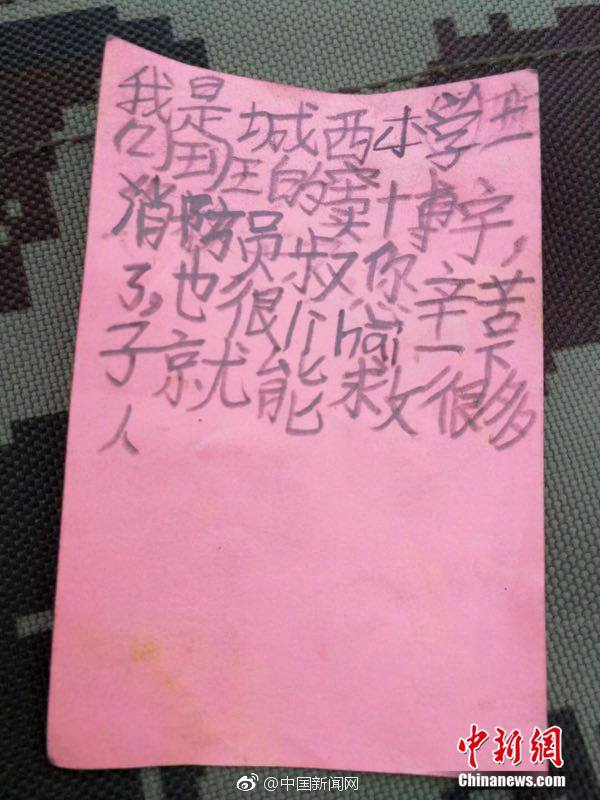 我是城西小学三
(4)班的窦博宇,
消防员叔你辛苦
了,也很hai一下
子就能救很多
人
@中国新闻网
中新网
Chinanews.com